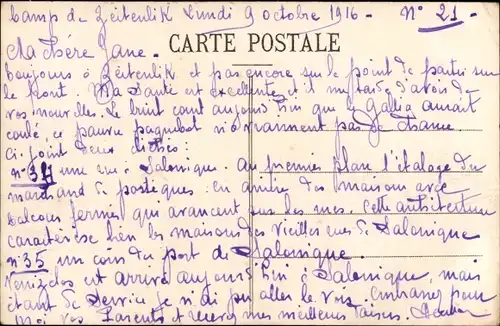 Camp de Zeitenlik Lundi 9 octobre 1916 - N° 21 -
Ma chère Jane.
CARTE POSTALE
Toujours à Zeitenlik et pas encore sur le point de partir sur
le front. Ma santé est excellente et il me tarde d'avoir de
vos nouvelles. Le bruit court aujourd'hui que le Gallia aurait
coulé, ce pauvre paquebot n'a vraiment pas de chance.
Ci joint deux clichés:
n° 34 une rue Salonique. Au premier plan l'étalage du
marchand de postiques en arrière des maisons avec
balcons fermés qui avancent sur les rues. Cette architecture
caractérise bien les maisons des vieilles rues de Salonique
n° 35 un coin du port de Salonique.
Venizelos est arrivé aujourd'hui à Salonique, mais
étant de service je n'ai pu aller le voir. Embrassez pour
moi vos Parents et recevez mes meilleurs baisers.